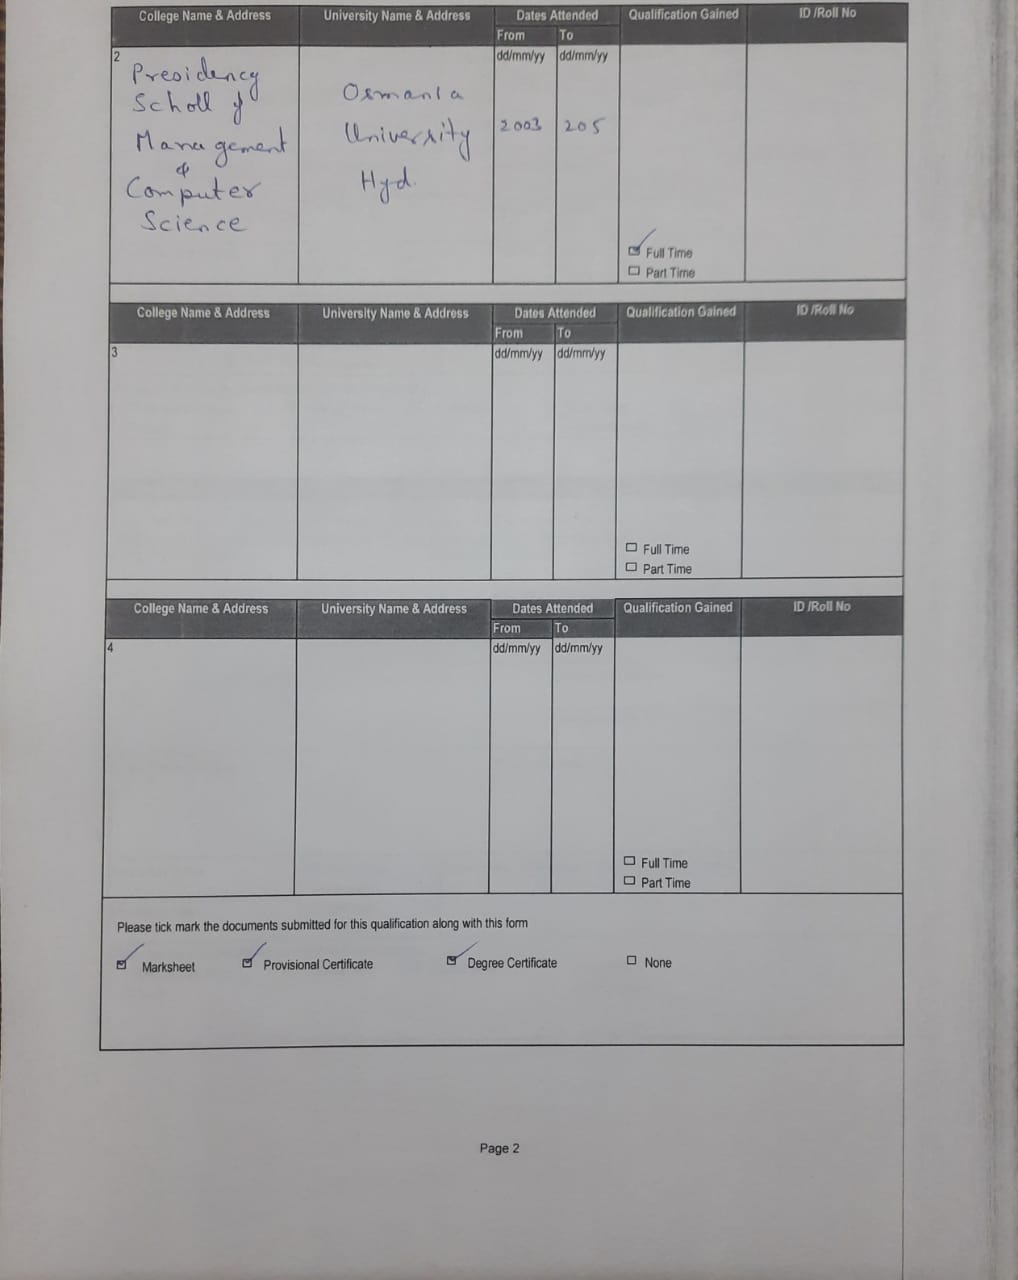 College Name & Address University Name & Address Dates Attended Qualification Gained ID /Roll No
From To
2 dd/mm/yy dd/mm/yy
Presidency
Scholl of
Management
&
Computer
Science
Osmania
University
Hyd.
2003 205
Full Time
Part Time
College Name & Address University Name & Address Dates Attended Qualification Gained ID /Roll No
From To
3 dd/mm/yy dd/mm/yy
Full Time
Part Time
College Name & Address University Name & Address Dates Attended Qualification Gained ID /Roll No
From To
4 dd/mm/yy dd/mm/yy
Full Time
Part Time
Please tick mark the documents submitted for this qualification along with this form
Marksheet Provisional Certificate Degree Certificate None
Page 2